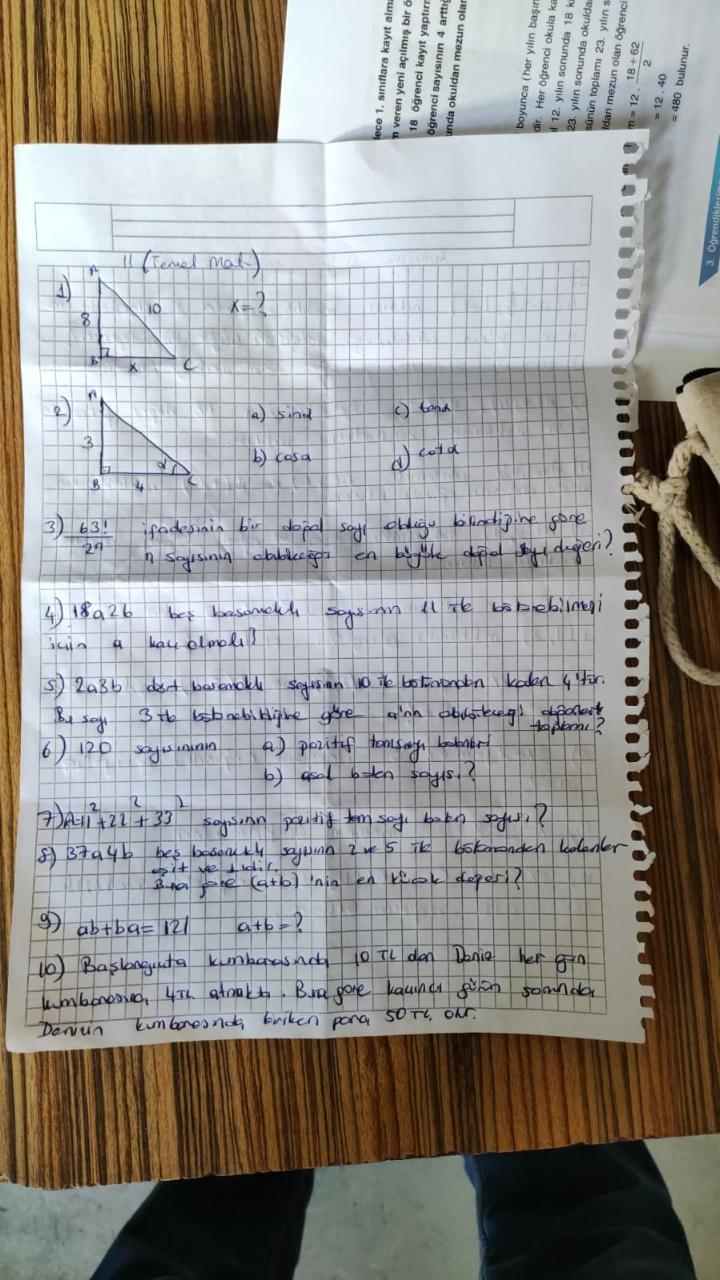 11 (Temel Mat.)
1) A
8
10
x=?
B
x
C
2) A
3
B
4
α
C
a) sinα
c) tanα
b) cosα
d) cotα
3) 63!
2n
ifadesinin bir doğal sayı olduğu bilindiğine göre
n sayısının olabileceği en büyük doğal sayı değeri?
4) 18a2b beş basamaklı sayısının 11 ile bölünebilmesi
için a kaç olmalı?
5) 2a3b dört basamaklı sayısının 10 ile bölümünden kalan 4'tür.
Bu sayı 3 ile bölünebildiğine göre a'nın alabileceği değerler
toplamı?
6) 120 sayısının a) pozitif tamsayı bölenleri
b) asal bölen sayısı?
7) A=11²+22²+33² sayısının pozitif tam sayı bölen sayısı?
8) 37a4b beş basamaklı sayısının 2 ve 5 ile bölümünden kalanlar
eşit ve 1'dir.
Buna göre (a+b)'nin en küçük değeri?
9) ab+ba=121 a+b=?
10) Başlangıçta kumbarasında 10 TL olan Deniz her gün
kumbarasına 4TL atmakta. Buna göre kaçıncı günün sonunda
kumbarasında biriken para 50 TL olur.
lece 1. sınıflara kayıt
veren yeni açılmış bir
18 öğrenci kayıt
öğrenci sayısının 4
unda okuldan mezun
boyunca (her yılın
dir. Her öğrenci okula
12. yılın sonunda 18
23. yılın sonunda
sünün toplamı 23. yılın
mezun olan
= 12 · 18 + 62
2
= 12 · 40
= 480 bulunur.
3.